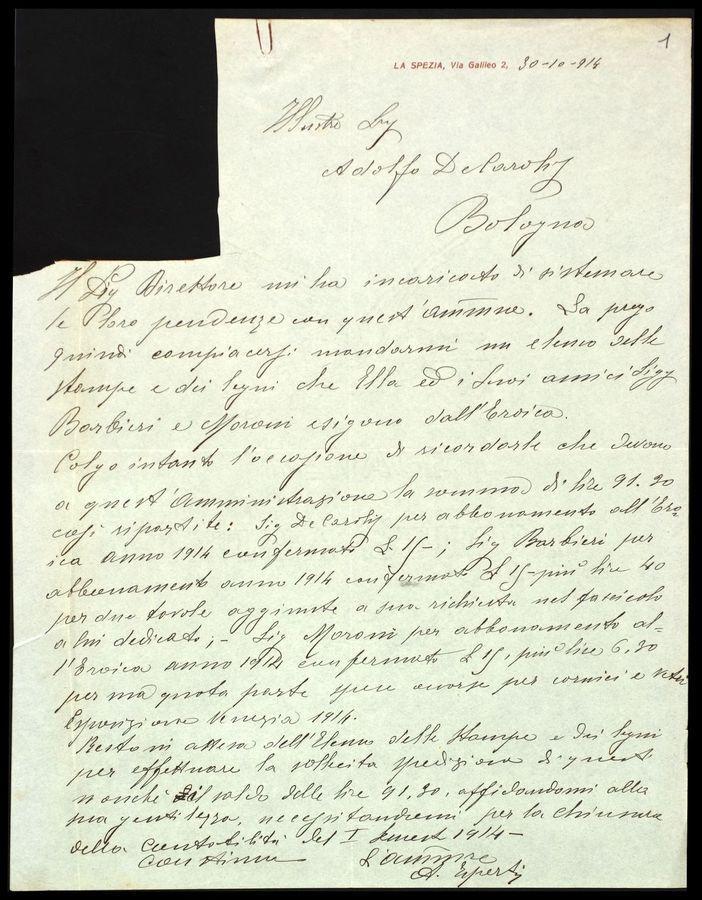 1
LA SPEZIA, Via Galileo 2, 30-10-914
Illustre Sig
Adolfo De Carolis
Bologna
Il Sig Direttore mi ha incaricato di sistemare
le Loro pendenze con quest'ammne. La prego
quindi compiacersi mandarmi un elenco delle
stampe e dei legni che Ella ed i Suoi amici Sigg
Barbieri e Moroni esigono dall'Eroica.
Colgo intanto l'occasione di ricordarle che devono
a quest'Amministrazione la somma di lire 91.20
così ripartite: Sig De Carolis per abbonamento all'Ero=
ica anno 1914 confermato £ 15-; Sig Barbieri per
abbonamento anno 1914 confermato £ 15- più lire 40
per due tavole aggiunte a sua richiesta nel fascicolo
a lui dedicato; - Sig Moroni per abbonamento al=
l'Eroica anno 1914 confermato £ 15, più lire 6,20
per sua quota parte spese occorse per cornici e vetri
Esposizione Venezia 1914.
Resto in attesa dell'Elenco delle stampe e dei legni
per effettuare la sollecita spedizione di questi
nonchè il saldo delle lire 91.20, affidandomi alla
sua gentilezza, necessitandomi per la chiusura
della Contabilità del I Semest 1914-
Con stima
L'ammne
A. Esperti